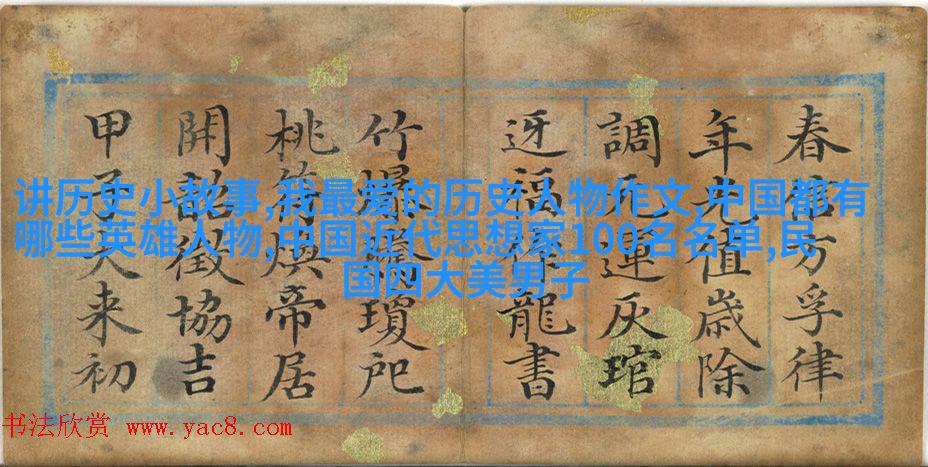 春方孚律
年光值歲除
調元運灰琯
迓福龍書
竹爆瓊
桃符煥帝居
開韶徵協吉
甲子來初
讲历史小故事,我最爱的历史人物作文,中国都有
哪些英雄人物,中国近代思想家100名名单,民
国四大美男子
书法欣赏 www.yac8.com